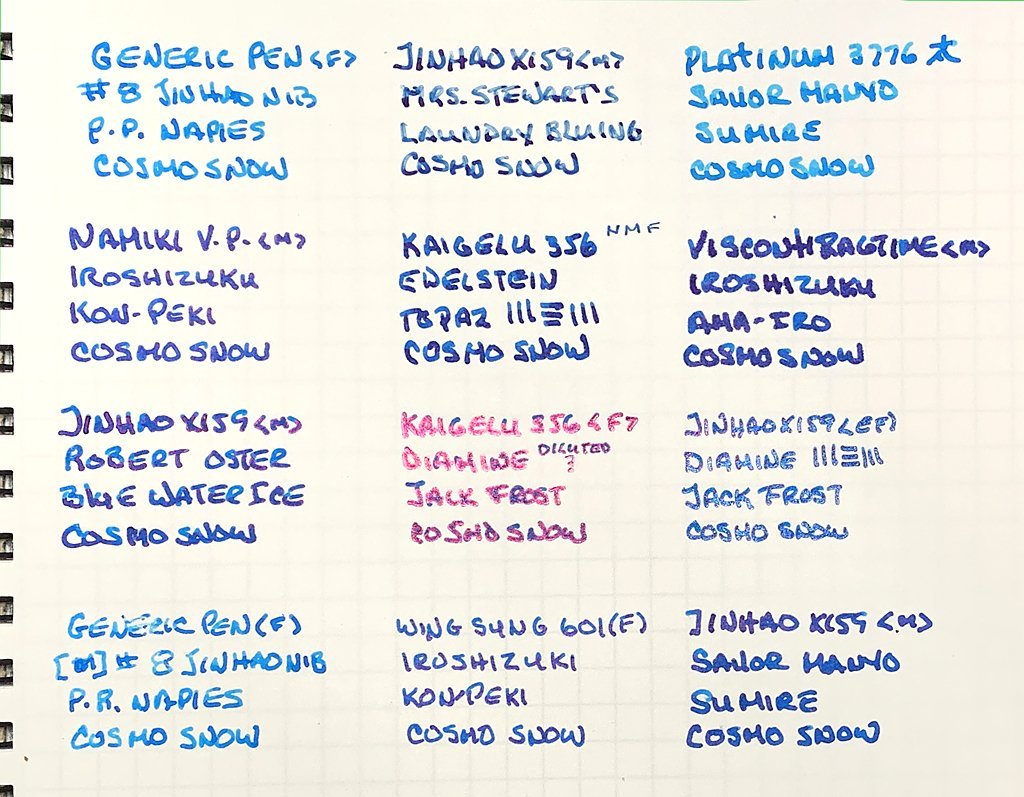 GENERIC PEN <F>
# 8 JINHAO NIB
P.P. NAPLES
COSMO SNOW
JINHAO X159 <M>
MRS. STEWART'S
LAUNDRY BLUING
COSMO SNOW
PLATINUM 3776 太
SAILOR MANYO
SUMIRE
COSMO SNOW
NAMIKI V.P. <M>
IROSHIZUKU
KON-PEKI
COSMO SNOW
KAIGELU 356 NMF
EDELSTEIN
TOPAZ |||≡|||
COSMO SNOW
VISCONTI RAGTIME <M>
IROSHIZUKU
AMA-IRO
COSMO SNOW
JINHAO X159 <M>
ROBERT OSTER
BLUE WATER ICE
COSMO SNOW
KAIGELU 356 <F>
DIAMINE DILUTED ?
JACK FROST
COSMO SNOW
JINHAO X159 <EF>
DIAMINE |||≡|||
JACK FROST
COSMO SNOW
GENERIC PEN (F)
[M] # 8 JINHAO NIB
P.R. NAPLES
COSMO SNOW
WING SUNG 601 (F)
IROSHIZUKI
KON-PEKI
COSMO SNOW
JINHAO X159 <M>
SAILOR MANYO
SUMIRE
COSMO SNOW